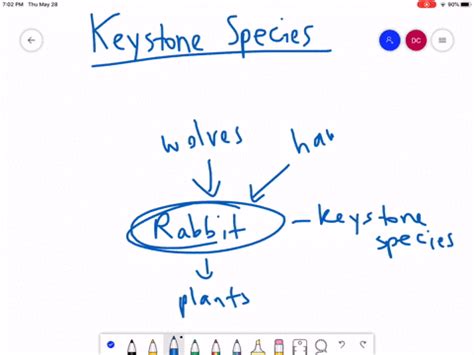 7:02 PM Thu May 28
90%
Keystone Species
DC
wolves
ha
Rabbit
keystone
species
plants